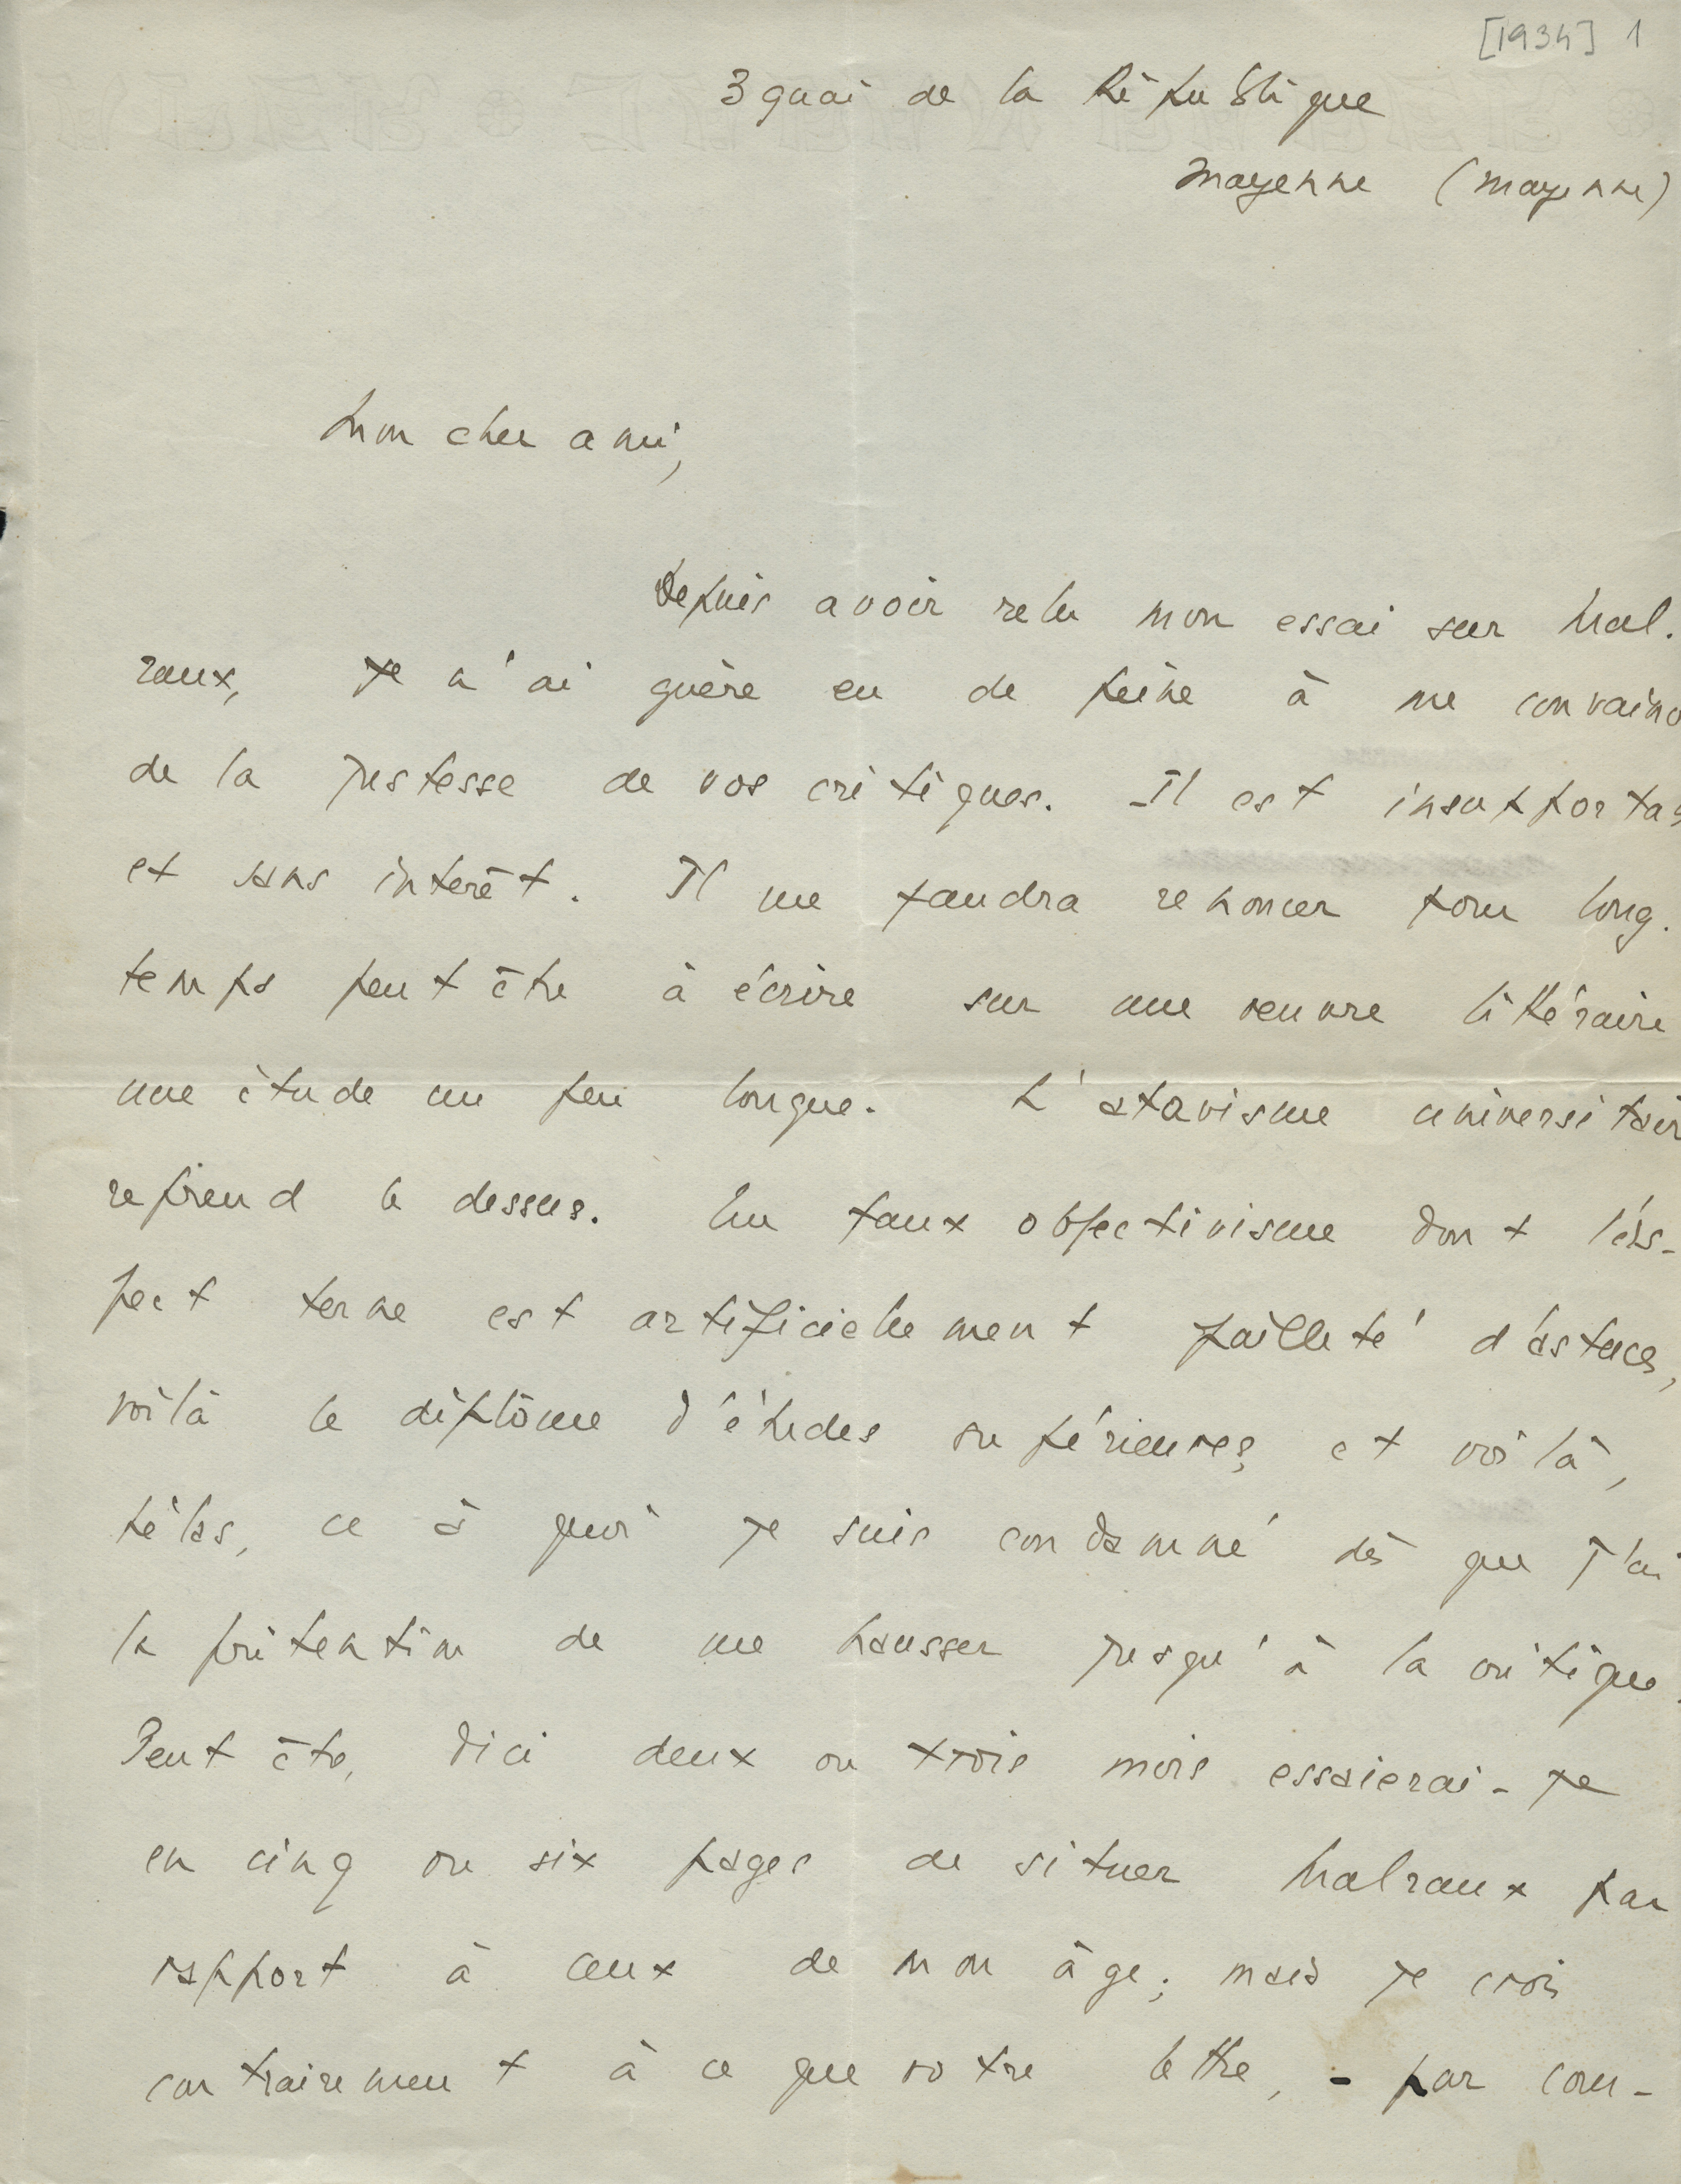 [1934] 1
3 quai de la République
Mayenne (Mayenne)
Mon cher ami,
Depuis avoir relu mon essai sur Mal.
raux, je n'ai guère eu de peine à me convainc
de la justesse de vos critiques. Il est insupportab
et sans interêt. Il me faudra renoncer pour long.
temps peut être à écrire sur une oeuvre littéraire
une étude un peu longue. L'atavisme universitair
reprend le dessus. Un faux objectivisme dont l'as-
pect terne est artificiellement pailleté d'astuces,
voilà le diplôme d'études supérieures, et voilà,
hélas, ce à quoi je suis condamné dès que j'ai
la prétention de me hausser jusqu'à la critique.
Peut être, d'ici deux ou trois mois essaierai-je
en cinq ou six pages de situer Malraux par
rapport à ceux de mon âge; mais je crois
contrairement à ce que votre lettre, - par cour-